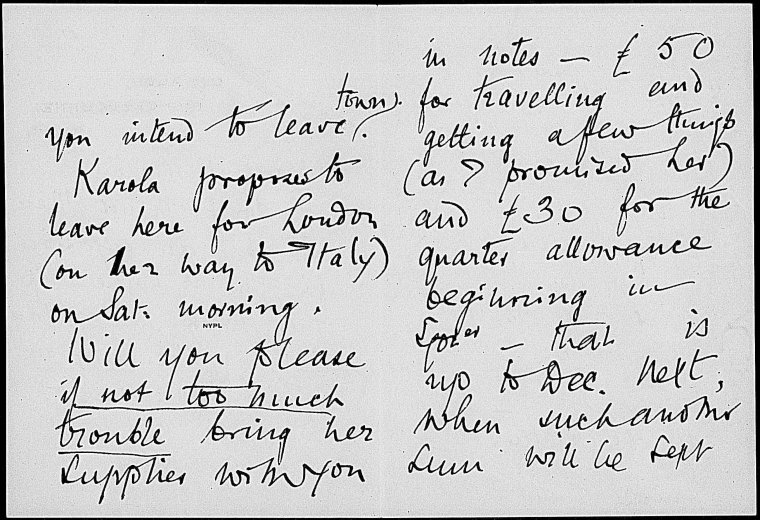 you intend to leave town.
Karola proposes to
leave here for London
(on her way to Italy)
on Sat. morning.
NYPL
Will you please
if not too much
trouble bring her
supplies with you
in notes — £50
for travelling and
getting a few things
(as I promised her)
and £30 for the
quarter allowance
beginning in
— that is
up to Dec. next,
when such another
sum will be sent